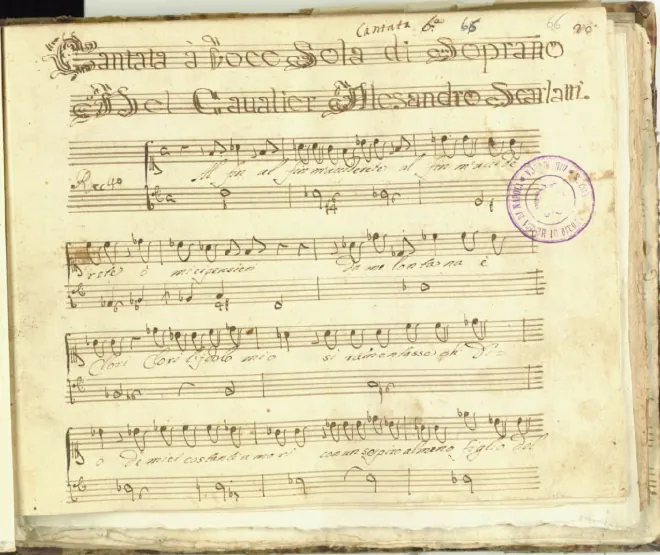 Cantata 6.ª 65 66
Cantata à Voce Sola di Soprano
Del Caualier Alesandro Scarlatti.
Al fin al fin m'ucciderete al fin m'uccide
Rec.vo
rete ò miei pensieri da me lontana è
Clori Clori l'idolo mio si ramentasse oh Di
o de miei costanti amori con un sospiro almeno figlio del